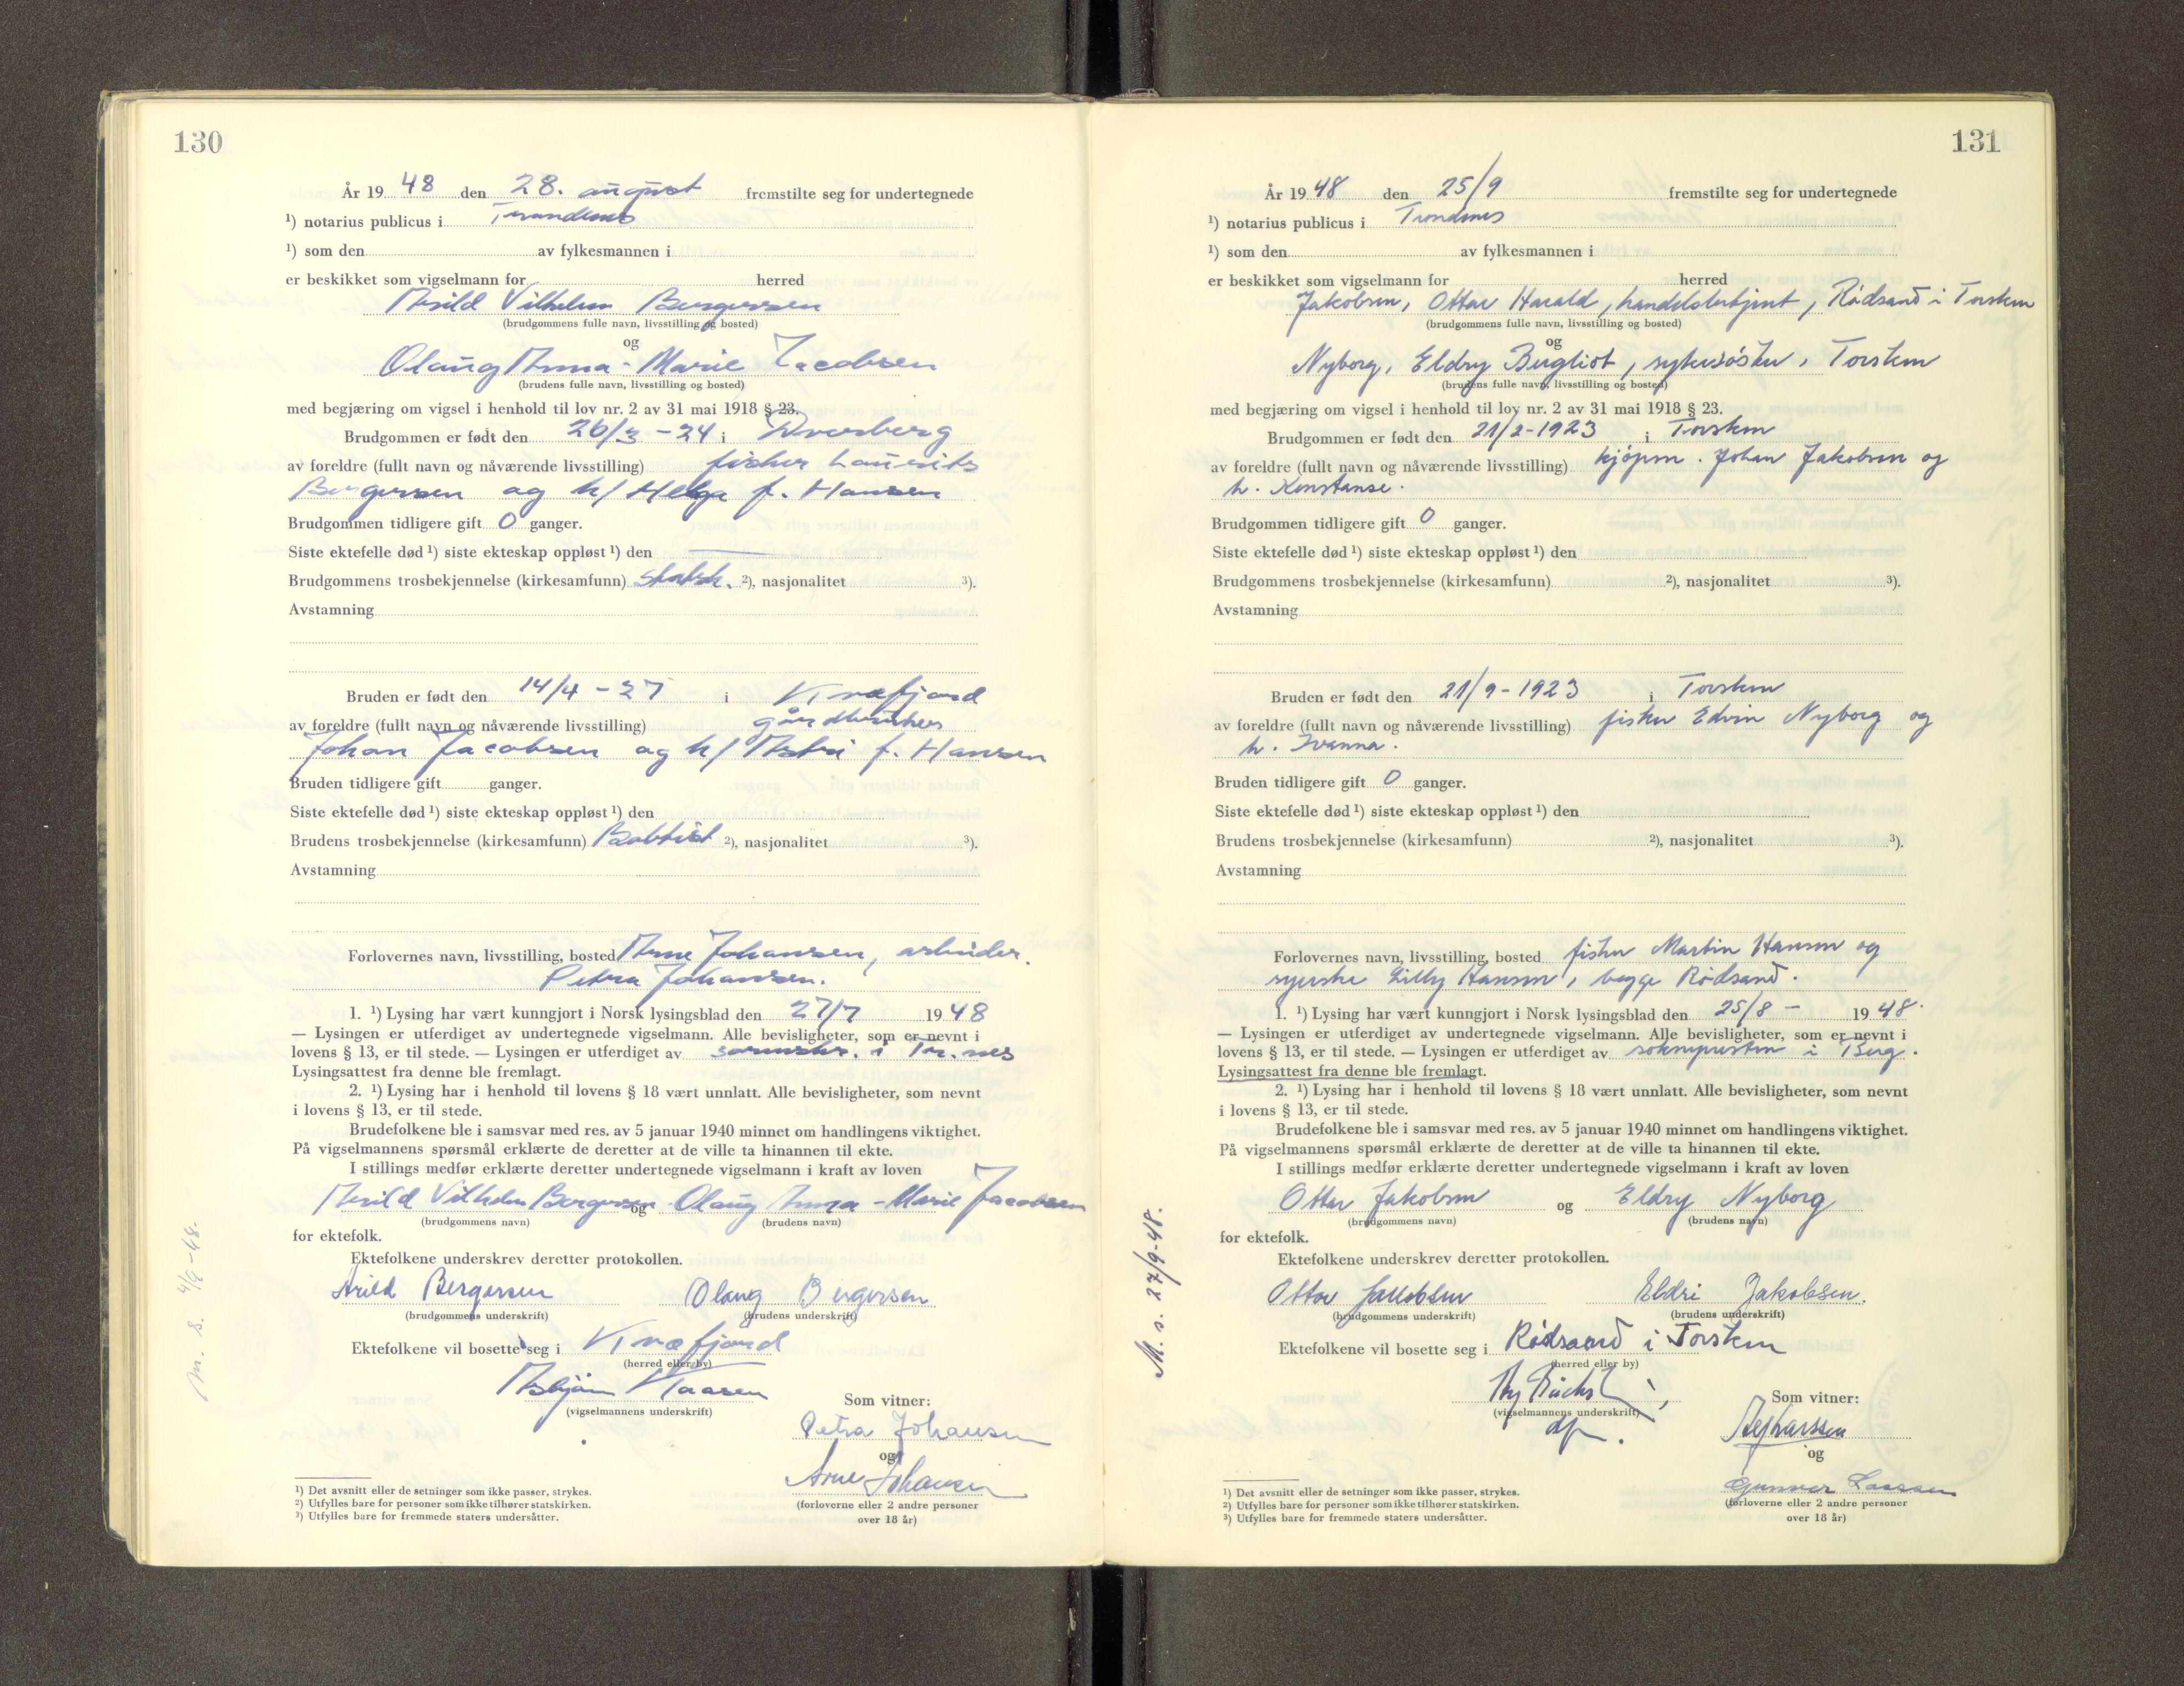 130
År 19 48 den 28. august fremstilte seg for undertegnede
¹) notarius publicus i Trondenes
¹) som den av fylkesmannen i
er beskikket som vigselmann for herred
Arild Vilhelm Bergersen
(brudgommens fulle navn, livsstilling og bosted)
og
Olaug Anna-Marie Jacobsen
(brudens fulle navn, livsstilling og bosted)
med begjæring om vigsel i henhold til lov nr. 2 av 31 mai 1918 § 23.
Brudgommen er født den 26/3 - 24 i Dverberg
av foreldre (fullt navn og nåværende livsstilling) fisker Laurits
Bergersen og h/ Helga f. Hansen
Brudgommen tidligere gift 0 ganger.
Siste ektefelle død ¹) siste ekteskap oppløst ¹) den
Brudgommens trosbekjennelse (kirkesamfunn) statsk. ²), nasjonalitet ³).
Avstamning
Bruden er født den 14/4 - 27 i Kvæfjord
av foreldre (fullt navn og nåværende livsstilling) gårdbruker
Johan Jacobsen og h/ Astri f. Hansen
Bruden tidligere gift ganger.
Siste ektefelle død ¹) siste ekteskap oppløst ¹) den
Brudens trosbekjennelse (kirkesamfunn) Babtist ²), nasjonalitet ³).
Avstamning
Forlovernes navn, livsstilling, bosted Arne Johansen, arbeider.
Petra Johansen.
1. ¹) Lysing har vært kunngjort i Norsk lysingsblad den 27/7 19 48
— Lysingen er utferdiget av undertegnede vigselmann. Alle bevisligheter, som er nevnt i
lovens § 13, er til stede. — Lysingen er utferdiget av sorenskr. i Tr.nes
Lysingsattest fra denne ble fremlagt.
2. ¹) Lysing har i henhold til lovens § 18 vært unnlatt. Alle bevisligheter, som nevnt
i lovens § 13, er til stede.
Brudefolkene ble i samsvar med res. av 5 januar 1940 minnet om handlingens viktighet.
På vigselmannens spørsmål erklærte de deretter at de ville ta hinannen til ekte.
I stillings medfør erklærte deretter undertegnede vigselmann i kraft av loven
Arild Vilhelm Bergersen og Olaug Anna-Marie Jacobsen
(brudgommens navn) (brudens navn)
for ektefolk.
Ektefolkene underskrev deretter protokollen.
Arild Bergersen Olaug Bergersen
(brudgommens underskrift) (brudens underskrift)
Ektefolkene vil bosette seg i Kvæfjord
(herred eller by)
Asbjørn Haasen
(vigselmannens underskrift)
Som vitner:
Petra Johansen
og
Arne Johansen
(forloverne eller 2 andre personer
over 18 år)
m. s. 4/9-48.
¹) Det avsnitt eller de setninger som ikke passer, strykes.
²) Utfylles bare for personer som ikke tilhører statskirken.
³) Utfylles bare for fremmede staters undersåtter.
131
År 19 48 den 25/9 fremstilte seg for undertegnede
¹) notarius publicus i Trondenes
¹) som den av fylkesmannen i
er beskikket som vigselmann for herred
Jakobsen, Ottar Harald, handelsbetjent, Rødsand i Torsken
(brudgommens fulle navn, livsstilling og bosted)
og
Nyborg, Eldry Bergliot, sykesøster, Torsken
(brudens fulle navn, livsstilling og bosted)
med begjæring om vigsel i henhold til lov nr. 2 av 31 mai 1918 § 23.
Brudgommen er født den 21/2-1923 i Torsken
av foreldre (fullt navn og nåværende livsstilling) kjøpm. Johan Jakobsen og
h. Konstanse.
Brudgommen tidligere gift 0 ganger.
Siste ektefelle død ¹) siste ekteskap oppløst ¹) den
Brudgommens trosbekjennelse (kirkesamfunn) ²), nasjonalitet ³).
Avstamning
Bruden er født den 21/9-1923 i Torsken
av foreldre (fullt navn og nåværende livsstilling) fisker Edvin Nyborg og
h. Ivanna.
Bruden tidligere gift 0 ganger.
Siste ektefelle død ¹) siste ekteskap oppløst ¹) den
Brudens trosbekjennelse (kirkesamfunn) ²), nasjonalitet ³).
Avstamning
Forlovernes navn, livsstilling, bosted fisker Martin Hansen og
syerske Lilly Hansen, begge Rødsand.
1. ¹) Lysing har vært kunngjort i Norsk lysingsblad den 25/8 - 19 48.
— Lysingen er utferdiget av undertegnede vigselmann. Alle bevisligheter, som er nevnt i
lovens § 13, er til stede. — Lysingen er utferdiget av soknepresten i Berg.
Lysingsattest fra denne ble fremlagt.
2. ¹) Lysing har i henhold til lovens § 18 vært unnlatt. Alle bevisligheter, som nevnt
i lovens § 13, er til stede.
Brudefolkene ble i samsvar med res. av 5 januar 1940 minnet om handlingens viktighet.
På vigselmannens spørsmål erklærte de deretter at de ville ta hinannen til ekte.
I stillings medfør erklærte deretter undertegnede vigselmann i kraft av loven
Ottar Jakobsen og Eldry Nyborg
(brudgommens navn) (brudens navn)
for ektefolk.
Ektefolkene underskrev deretter protokollen.
Ottar Jakobsen Eldri Jakobsen.
(brudgommens underskrift) (brudens underskrift)
Ektefolkene vil bosette seg i Rødsand i Torsken
(herred eller by)
(vigselmannens underskrift)
Som vitner:
og
Gunvor Lassen
(forloverne eller 2 andre personer
over 18 år)
M. s. 27/9-48.
¹) Det avsnitt eller de setninger som ikke passer, strykes.
²) Utfylles bare for personer som ikke tilhører statskirken.
³) Utfylles bare for fremmede staters undersåtter.